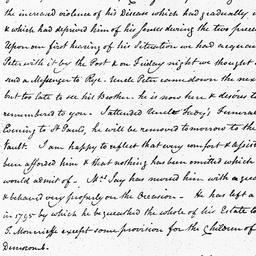 the increased violence of his Disease which had gradually
& which had deprived him of his senses during the two prece
Upon our first hearing of his Situation we had acquain
Peter with it by the Post & on Friday night we thought
send a Messenger to Rye. Uncle Peter came down the nex
but too late to see his Brother. he is now here & desires to
remembered to you. I attended Uncle Fady's Funeral
Evening to St Pauls, he will be removed tomorrow to the
Vault. I am happy to reflect that every comfort & assis
been afforded him & that nothing has been omitted which
would admit of. Mrs. Jay has nursed him with a grea
& behaved very properly on the Occasion. He has left a
in 1795 by which he bequeathed the whole of his Estate to
except some provision for the Children of
Dunscomb.